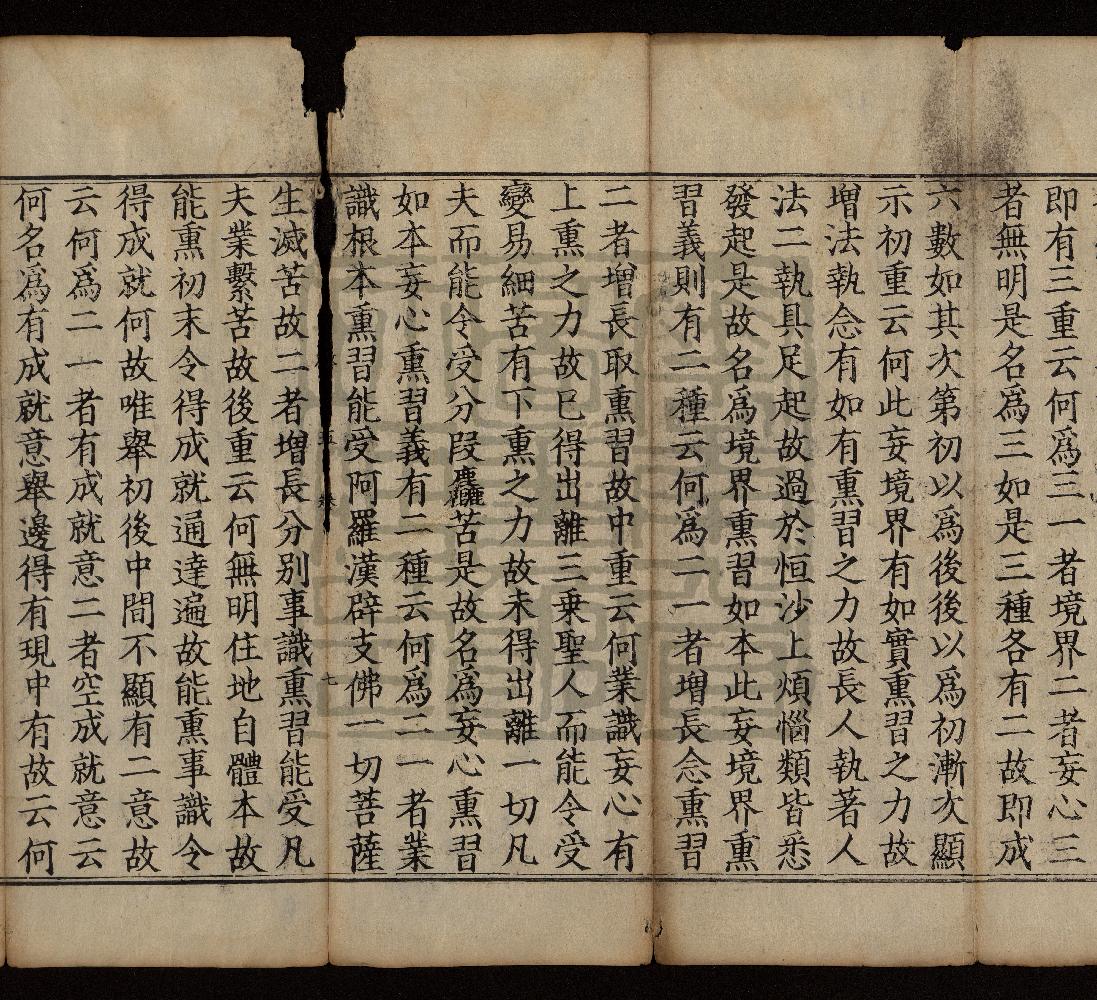 即有三重云何爲三一者境界二者妄心三
者無明是名爲三如是三種各有二故即成
六數如其次第初以爲後後以爲初漸次顯
示初重云何此妄境界有如實熏習之力故
增法執念有如有熏習之力故長人執著人
法二執具足起故過於恒沙上煩惱類皆悉
發起是故名爲境界熏習如本此妄境界熏
習義則有二種云何爲二一者增長念熏習
二者增長取熏習故中重云何業識妄心有
上熏之力故已得出離三乗聖人而能令受
變易細苦有下熏之力故未得出離一切凡
夫而能令受分段麤苦是故名爲妄心熏習
如本妄心熏習義有二種云何爲二一者業
識根本熏習能受阿羅漢辟支佛一切菩薩
五 卷 七
生滅苦故二者增長分別事識熏習能受凡
夫業繫苦故後重云何無明住地自體本故
能熏初末令得成就通達遍故能熏事識令
得成就何故唯舉初後中間不顯有二意故
云何爲二一者有成就意二者空成就意云
何名爲有成就意舉邊得有現中有故云何